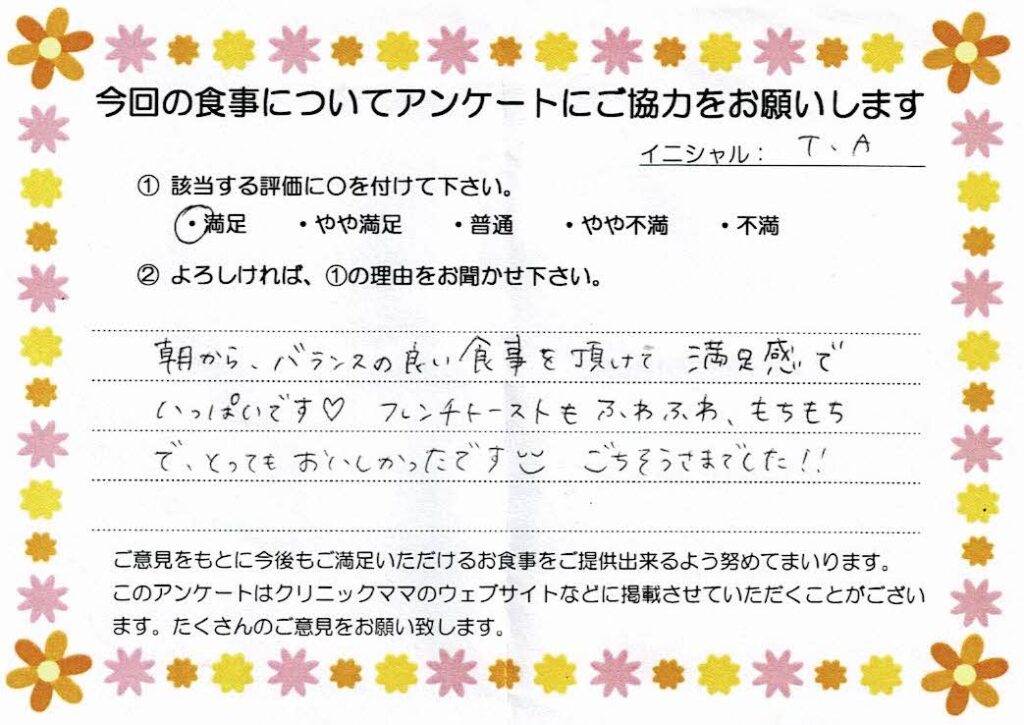 今回の食事についてアンケートにご協力をお願いします
イニシャル： T、A
① 該当する評価に〇を付けて下さい。
・満足　・やや満足　・普通　・やや不満　・不満
② よろしければ、①の理由をお聞かせ下さい。
朝から、バランスの良い食事を頂けて 満足感で
いっぱいです♡ フレンチトーストも ふわふわ、もちもち
で、とっても おいしかったです ごちそうさまでした!!
ご意見をもとに今後もご満足いただけるお食事をご提供出来るよう努めてまいります。
このアンケートはクリニックママのウェブサイトなどに掲載させていただくことがござい
ます。たくさんのご意見をお願い致します。